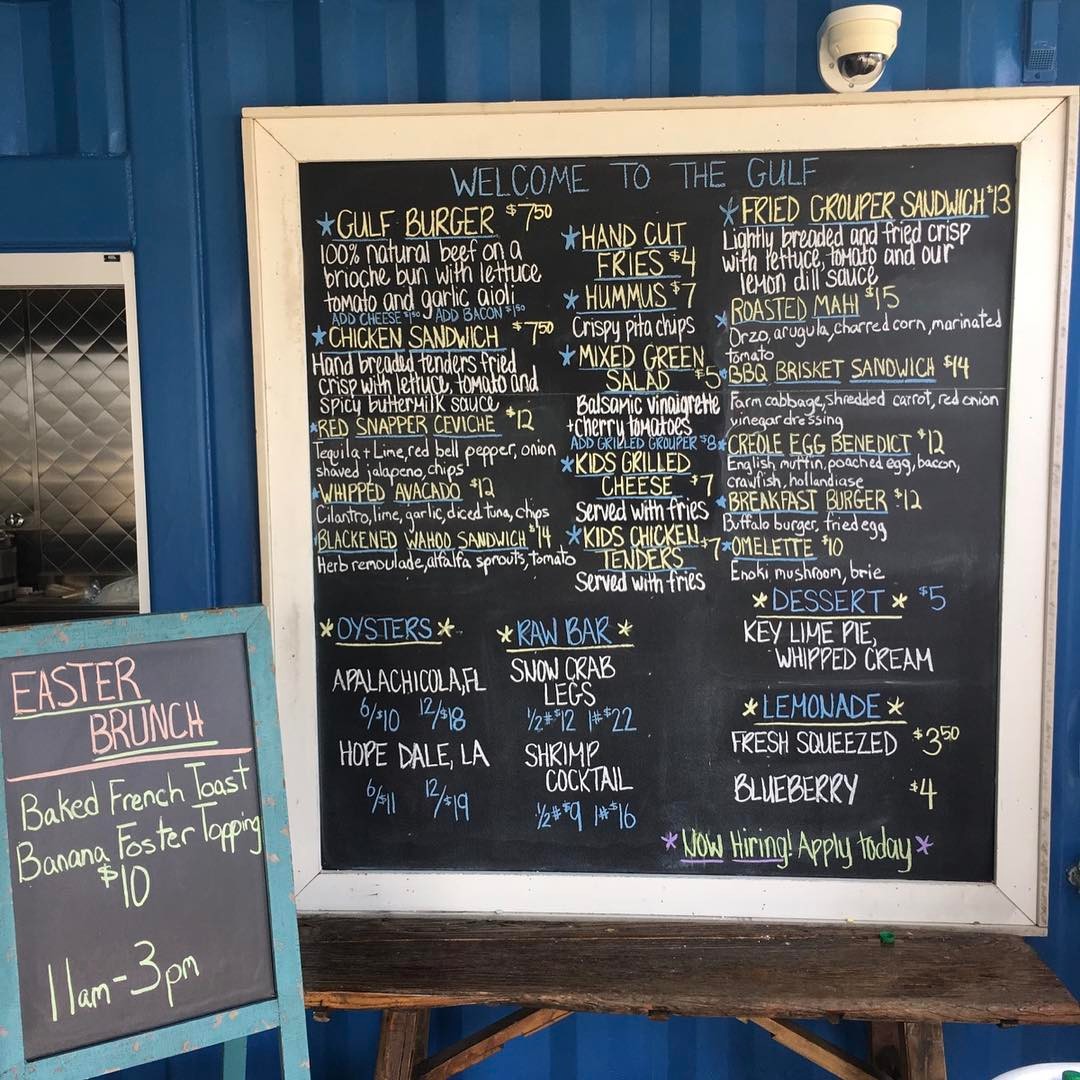 WELCOME TO THE GULF
*GULF BURGER $7.50
100% natural beef on a
brioche bun with lettuce
tomato and garlic aioli
ADD CHEESE $1.50 ADD BACON $1.50
*CHICKEN SANDWICH $7.50
Hand breaded tenders fried
crisp with lettuce, tomato and
spicy buttermilk sauce
*RED SNAPPER CEVICHE $12
Tequila + Lime, red bell pepper, onion
shaved jalapeno, chips
*WHIPPED AVACADO $12
Cilantro, lime, garlic, diced tuna, chips
*BLACKENED WAHOO SANDWICH $14
Herb remoulade, alfalfa sprouts, tomato
*HAND CUT
FRIES $4
*HUMMUS $7
Crispy pita chips
*MIXED GREEN
SALAD $5
Balsamic vinaigrette
+cherry tomatoes
ADD GRILLED GROUPER $8
*KIDS GRILLED
CHEESE $7
Served with fries
*KIDS CHICKEN
TENDERS $7
Served with fries
*FRIED GROUPER SANDWICH $13
Lightly breaded and fried crisp
with lettuce, tomato and our
lemon dill sauce
*ROASTED MAHI $15
Orzo, arugula, charred corn, marinated
tomato
*BBQ BRISKET SANDWICH $14
Farm cabbage, shredded carrot, red onion
vinegar dressing
*CREOLE EGG BENEDICT $12
English muffin, poached egg, bacon,
crawfish, hollandiase
*BREAKFAST BURGER $12
Buffalo burger, fried egg
*OMELETTE $10
Enoki mushroom, brie
*OYSTERS*
APALACHICOLA, FL
6/$10 12/$18
HOPE DALE, LA
6/$11 12/$19
*RAW BAR*
SNOW CRAB
LEGS
1/2#$12 1#$22
SHRIMP
COCKTAIL
1/2#$9 1#$16
*DESSERT* $5
KEY LIME PIE,
WHIPPED CREAM
*LEMONADE*
FRESH SQUEEZED $3.50
BLUEBERRY $4
*Now Hiring! Apply today*
EASTER
BRUNCH
Baked French Toast
Banana Foster Topping
$10
11am-3pm